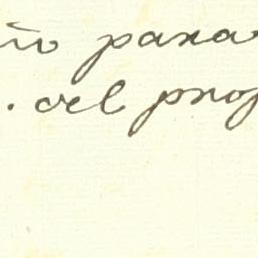 ño para
. del prop